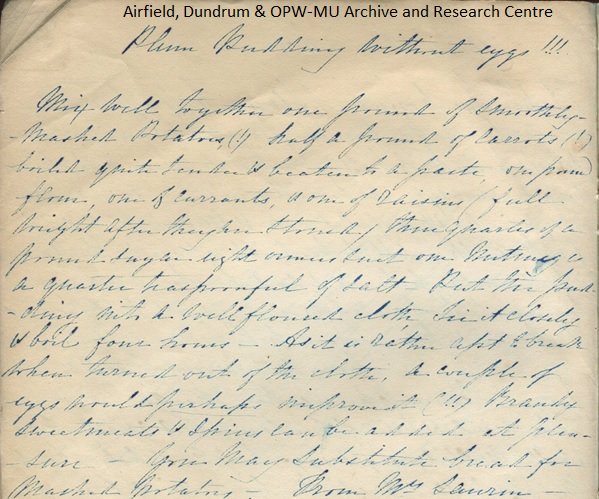 Airfield, Dundrum & OPW-MU Archive and Research Centre
Plum Pudding without eggs!!!
Mix well together one pound of Smoothly-
-Mashed Potatoes (!) half a pound of Carrots (!)
boiled quite tender & beaten to a paste, one pound
flour, one of currants, & one of raisins (full
weight after they are stoned) three quarters of a
pound sugar eight ounces suet one Nutmeg &
a quarter teaspoonful of salt - Put the pud-
-ding into a well floured cloth tie it closely
& boil four hours - As it is rather apt to break
when turned out of the cloth, a couple of
eggs would perhaps improve it (!!!) Brandy
Sweetmeats & Spices can be added at plea-
-sure - You May Substitute bread for
Mashed Potatoes - From Mrs